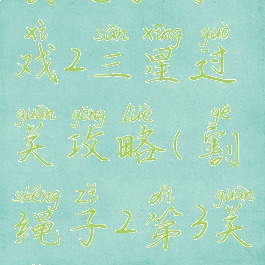 xì sān xīng guò
戏2三星过
guān gōng lüè gē
关攻略(割
shéng zǐ dì guān
绳子2第3关